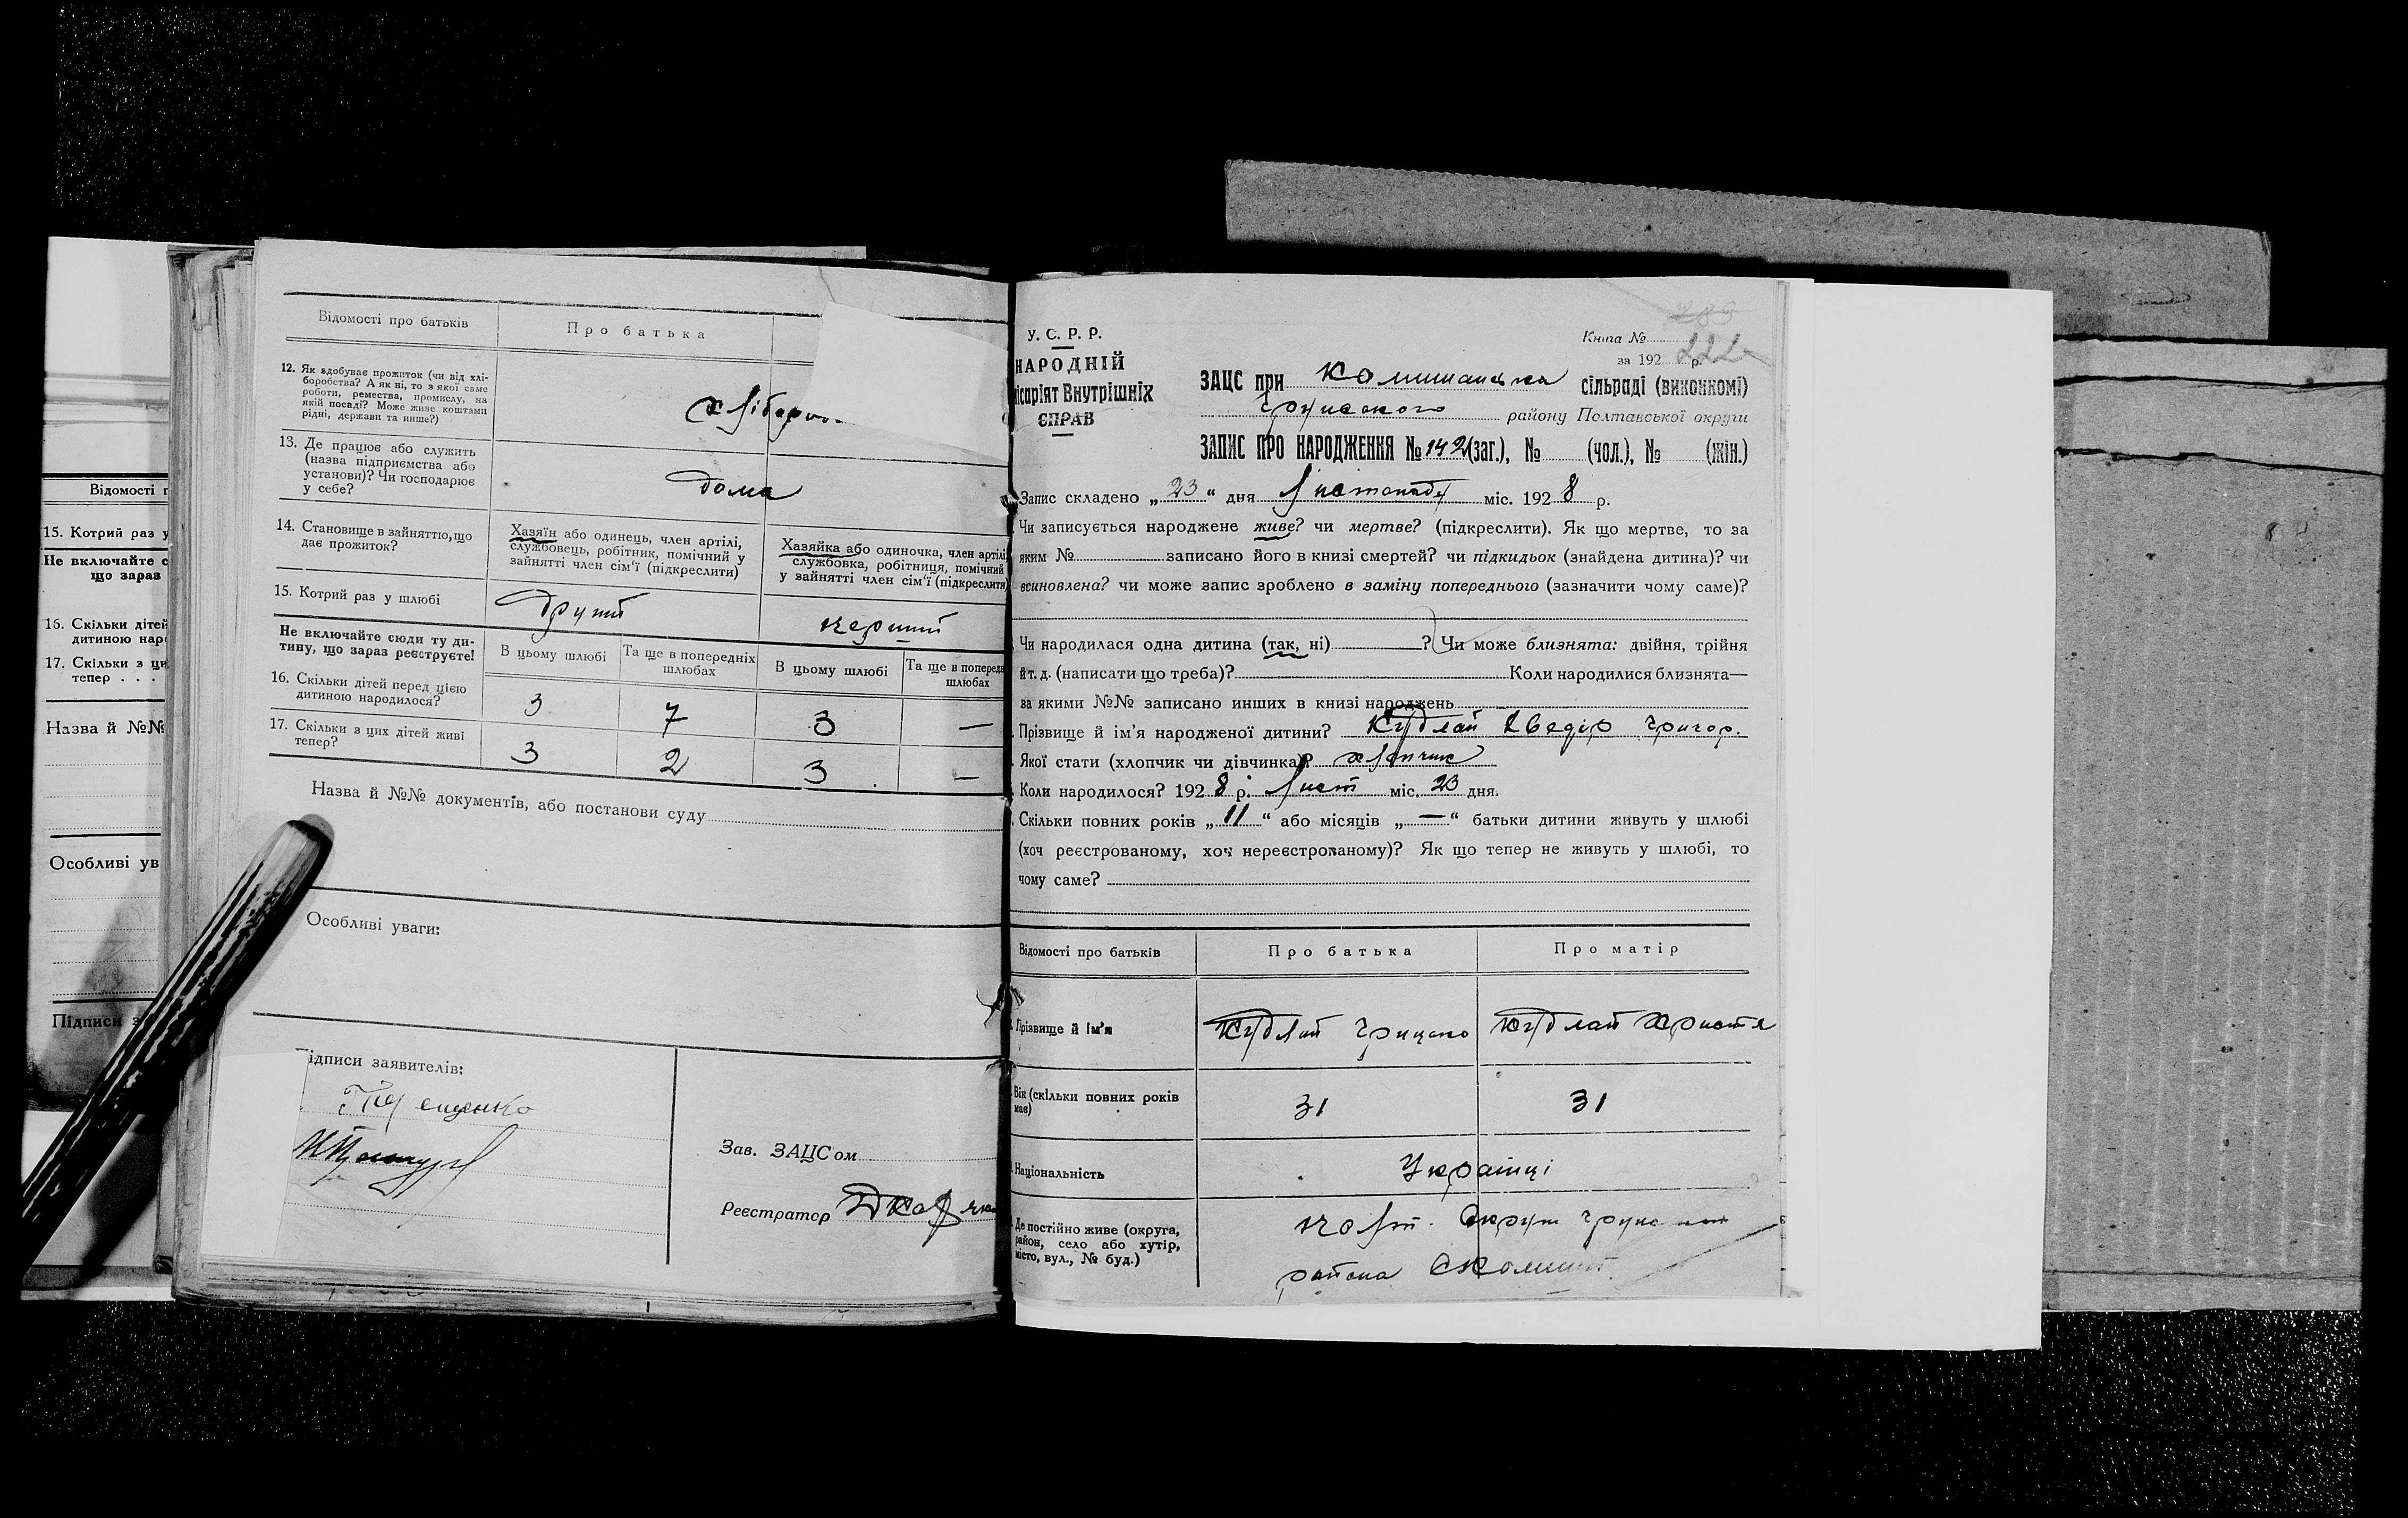 Відомості про батьків
Про батька
12. Як здобуває прожиток (чи від хлі-
боробства? А як ні, то з якої саме
роботи, ремества, промислу, на
якій посаді? Може живе коштами
рідні, держави та инше?)
13. Де працює або служить
(назва підприємства або
установи)? Чи господарює
у себе?
дома
14. Становище в зайняттю, що
дає прожиток?
Хазяїн або одинець, член артілі,
службовець, робітник, помічний у
зайнятті член сім'ї (підкреслити)
Хазяйка або одиночка, член артілі
службовка, робітниця, помічний
у зайнятті член сім'ї (підкреслити)
15. Котрий раз у шлюбі
другий
перший
Не включайте сюди ту ди-
тину, що зараз реєструєте!
В цьому шлюбі
Та ще в попередніх
шлюбах
В цьому шлюбі
Та ще в поперед
шлюбах
16. Скільки дітей перед цією
дитиною народилося?
3 7 3 —
17. Скільки з цих дітей живі
тепер?
3 2 3 —
Назва й №№ документів, або постанови суду
Особливі уваги:
ідписи заявителів:
Зав. ЗАЦСом
Реєстратор
Відомості
15. Котрий раз у
Не включайте с
що зараз
16. Скільки дітей
дитиною наро
17. Скільки з ци
тепер . . .
Назва й №№
Особливі ув
Підписи з
У. С. Р. Р.
НАРОДНІЙ
ісаріят Внутрішніх
СПРАВ
Книга №
за 192 р.
222
ЗАЦС при Комишанська сільраді (виконкомі)
Грунського району Полтавської округи
ЗАПИС ПРО НАРОДЖЕННЯ № 142 (заг.), № (чол.), № (жін.)
Запис складено „23“ дня Листопада міс. 1928 р.
Чи записується народжене живе? чи мертве? (підкреслити). Як що мертве, то за
яким № записано його в книзі смертей? чи підкидьок (знайдена дитина)? чи
всиновлена? чи може запис зроблено в заміну попереднього (зазначити чому саме)?
Чи народилася одна дитина (так, ні) ? Чи може близнята: двійня, трійня
й т. д. (написати що треба)? Коли народилися близнята—
за якими №№ записано инших в книзі народжень
Прізвище й ім'я народженої дитини? Кудлай Хведір Григор.
Якої стати (хлопчик чи дівчинка)? хлопчик
Коли народилося? 1928 р. Лист міс. 23 дня.
Скільки повних років „11“ або місяців „—“ батьки дитини живуть у шлюбі
(хоч реєстрованому, хоч нереєстрованому)? Як що тепер не живуть у шлюбі, то
чому саме?
Відомості про батьків
Про батька
Про матір
Прізвище й ім'я
Кудлай Грицько
Кудлай Христя
Вік (скільки повних років
має)
31
31
Національність
Українці
Де постійно живе (округа,
район, село або хутір,
місто, вул., № буд.)
Полт. Округи Грунс
района С Комиші